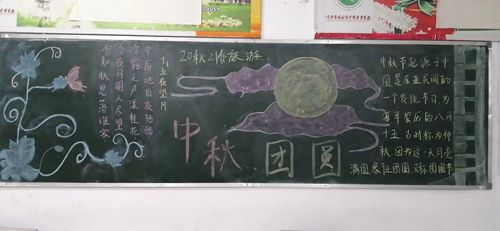 十五夜望月
中庭地白夜栖鸦
冷露无声湿桂花
今夜月明人尽望
不知秋思落谁家
20秋2 旅游
中秋团员
中秋节起源于中
国是在亚民间的
一个传统节日,为
每年农历的八月
十五,古时称为仲
秋,因为这一天月亮
满圆,象征团圆,又称团圆节